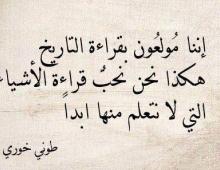 إننا مُولعُون بقراءة التاريخ
هكذا نحن نحبُّ قراءة الأشياء
التي لا نتعلم منها ابداً
طوني خوري